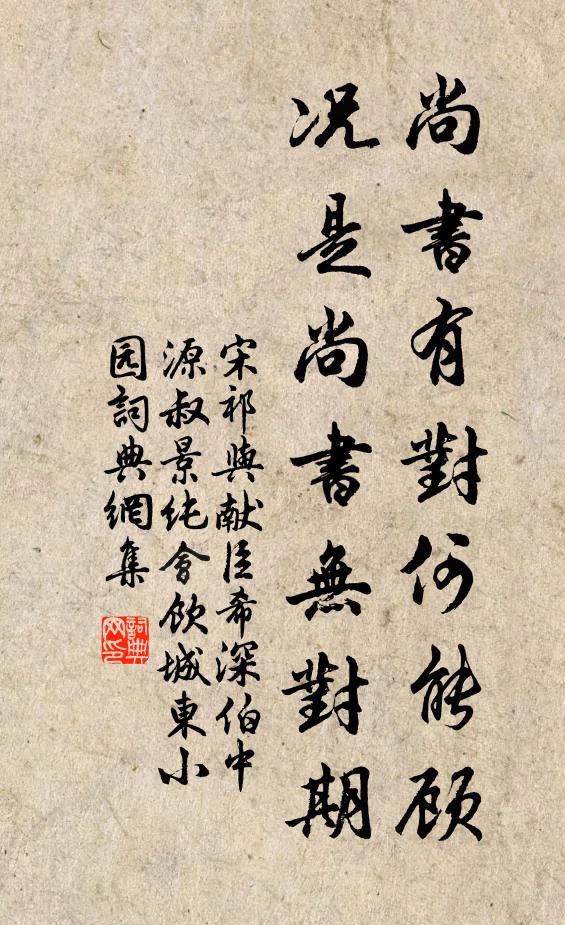 尚書有對何能顾
况是尚書無對期
宋祁與献臣希深伯中
源叔景纯會飲城東小
园詞典網集
詞典
网印